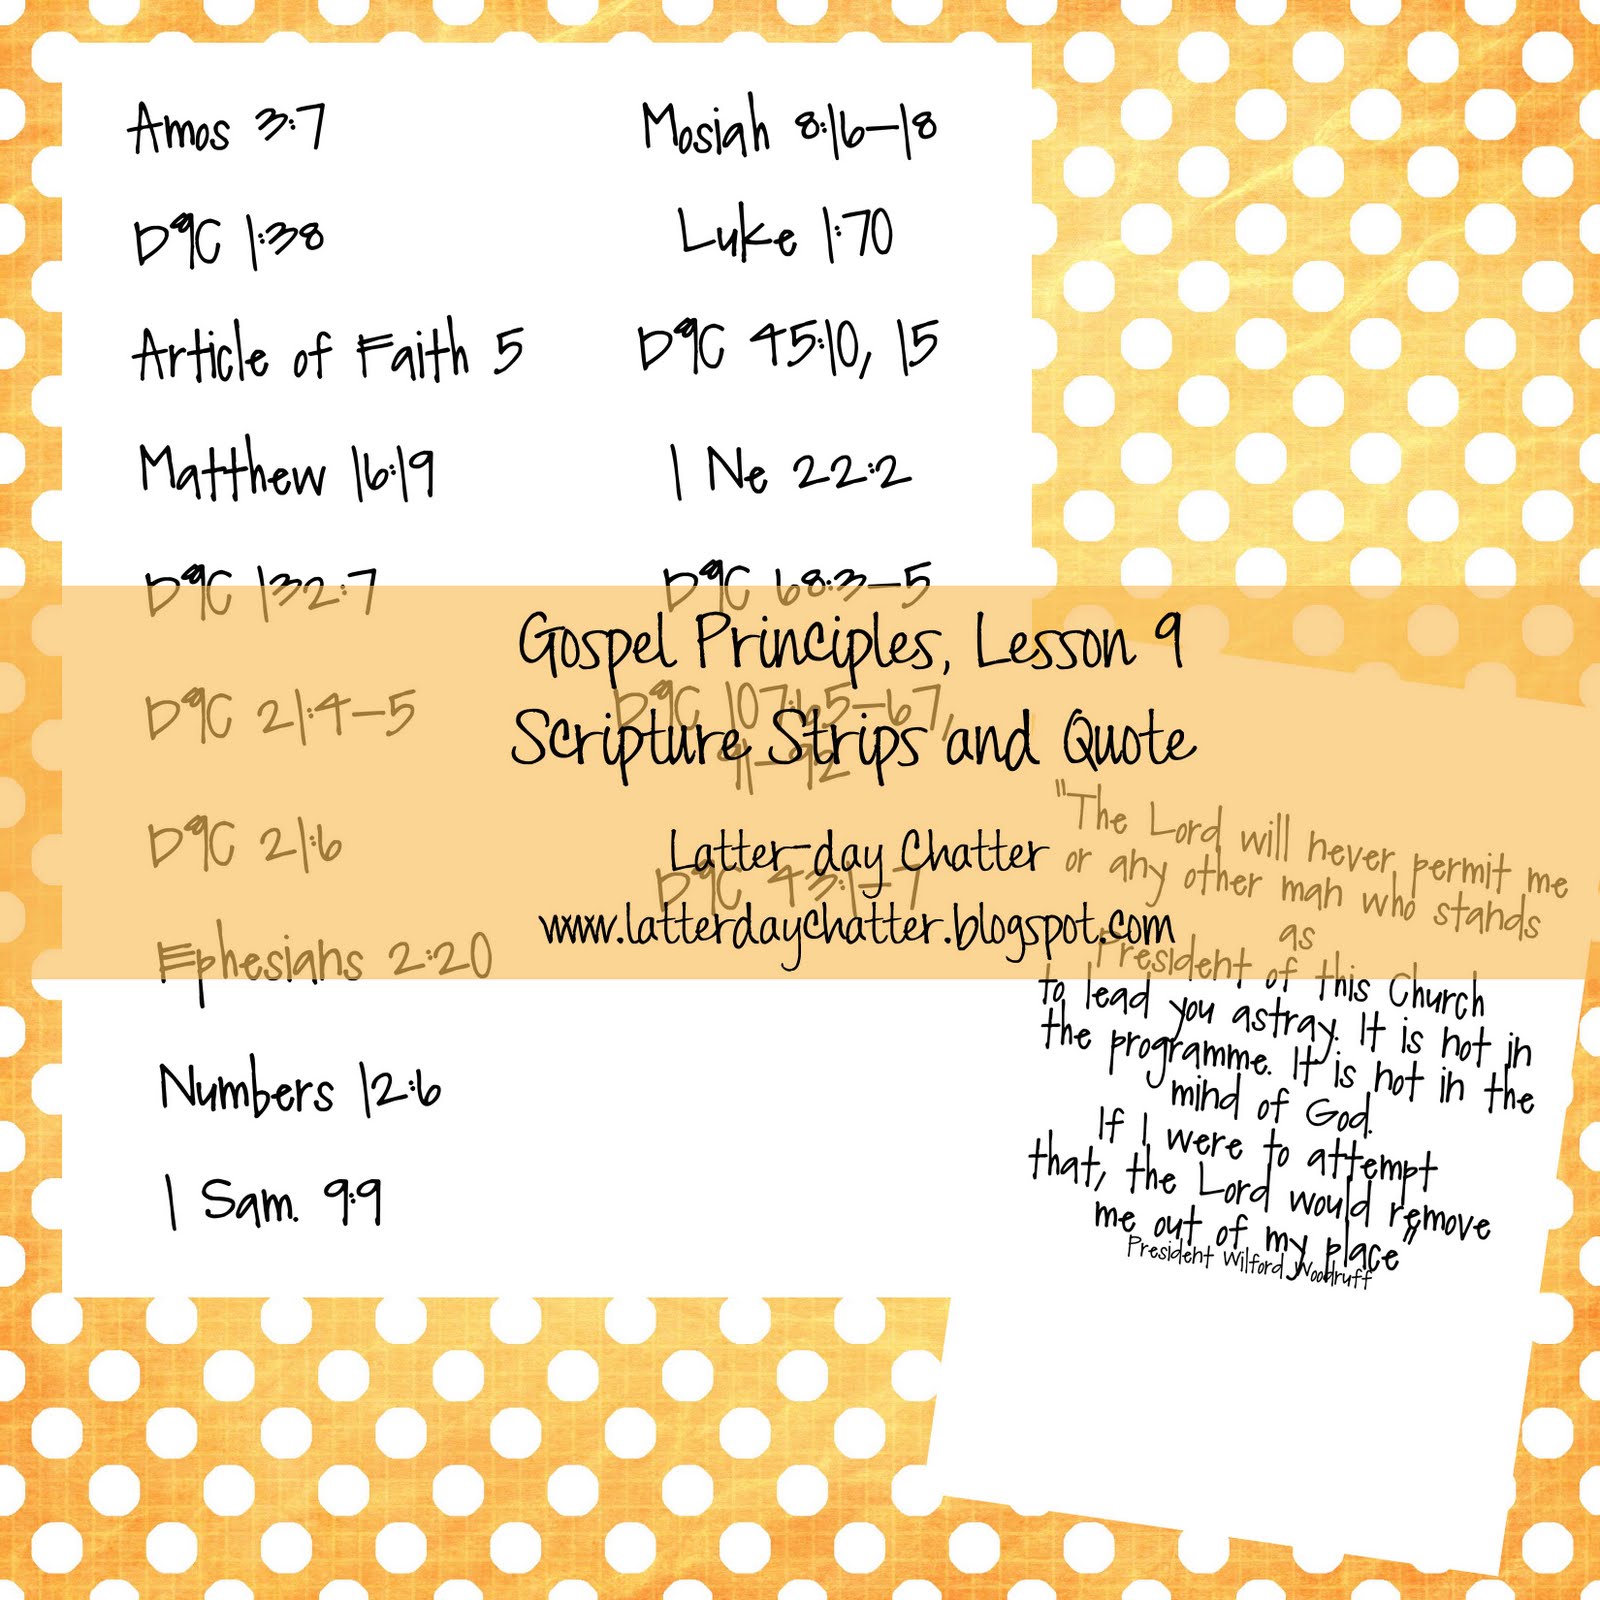 Amos 3:7
D&C 1:38
Article of Faith 5
Matthew 16:19
D&C 132:7
D&C 21:4-5
D&C 21:6
Ephesians 2:20
Numbers 12:6
1 Sam. 9:9
Mosiah 8:16-18
Luke 1:70
D&C 45:10, 15
1 Ne 22:2
D&C 68:3-5
D&C 107:65-67,
91-92
D&C 43:1-7
Gospel Principles, Lesson 9
Scripture Strips and Quote
Latter-day Chatter
www.latterdaychatter.blogspot.com
"The Lord will never permit me
or any other man who stands
as
President of this Church
to lead you astray. It is not in
the programme. It is not in the
mind of God.
If I were to attempt
that, the Lord would remove
me out of my place"
President Wilford Woodruff